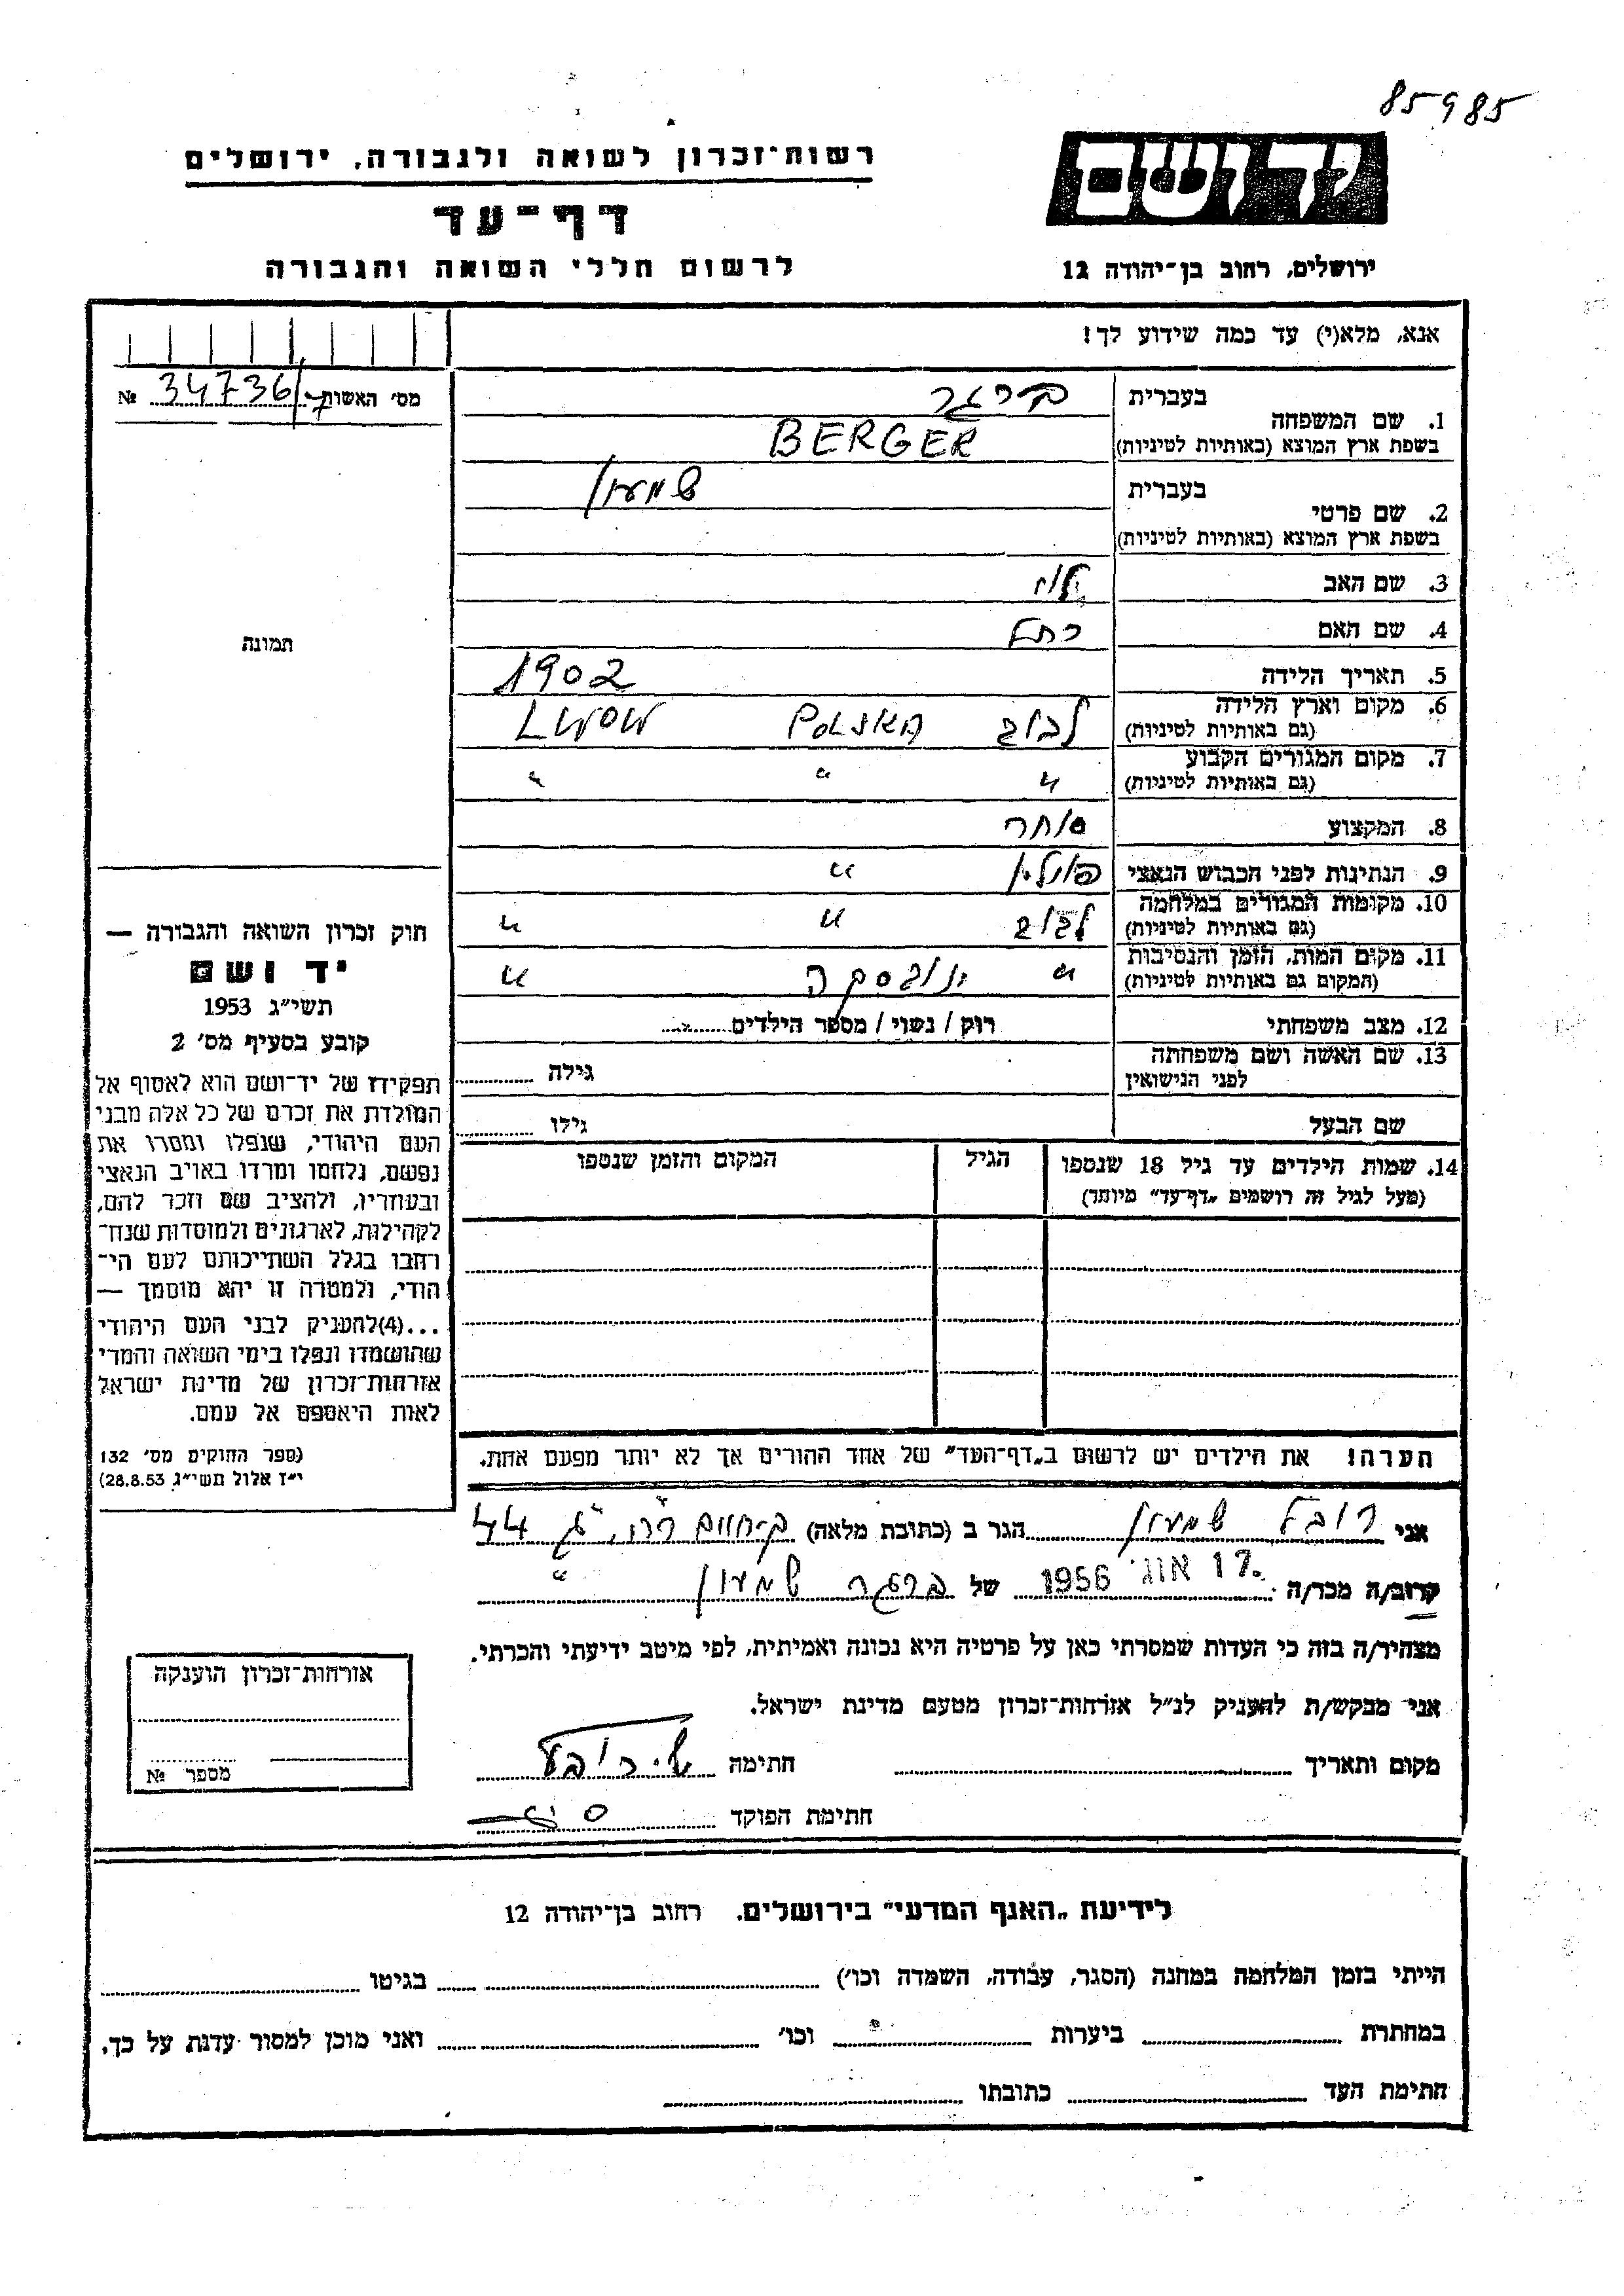 85985
רשות־זכרון לשואה ולגבורה, ירושלים
יד ושם
דף־עד
לרשום חללי השואה והגבורה
ירושלים, רחוב בן־יהודה 12
אנא, מלא(י) עד כמה שידוע לך!
מס' האשות 34736/7 №
1. שם המשפחה
בעברית ברגר
בשפת ארץ המוצא (באותיות לטיניות) BERGER
2. שם פרטי
בעברית שמעון
בשפת ארץ המוצא (באותיות לטיניות)
3. שם האב
4. שם האם רחל
5. תאריך הלידה 1902
6. מקום וארץ הלידה לבוב POLSKA LWOW
(גם באותיות לטיניות)
7. מקום המגורים הקבוע " " "
(גם באותיות לטיניות)
8. המקצוע סוחר
9. הנתינות לפני הכבוש הנאצי פולין "
10. מקומות המגורים במלחמה לבוב " "
(גם באותיות לטיניות)
11. מקום המות, הזמן והנסיבות " ינובסקה "
(המקום גם באותיות לטיניות)
12. מצב משפחתי רוק / נשוי / מספר הילדים
13. שם האשה ושם משפחתה
לפני הנישואין גילה
שם הבעל גילו
14. שמות הילדים עד גיל 18 שנספו הגיל המקום והזמן שנספו
(מעל לגיל זה רושמים „דף־עד" מיוחד)
הערה! את הילדים יש לרשום ב„דף־העד" של אחד ההורים אך לא יותר מפעם אחת.
תמונה
חוק זכרון השואה והגבורה —
יד ושם
תשי״ג 1953
קובע בסעיף מס' 2
תפקידו של יד־ושם הוא לאסוף אל
המולדת את זכרם של כל אלה מבני
העם היהודי, שנפלו ומסרו את
נפשם, נלחמו ומרדו באויב הנאצי
ובעוזריו, ולהציב שם וזכר להם,
לקהילות, לארגונים ולמוסדות שנח־
רחבו בגלל השתייכותם לעם הי־
הודי, ולמטרה זו יהא מוסמך —
...(4)להעניק לבני העם היהודי
שהושמדו ונפלו בימי השואה והמרי
אזרחות־זכרון של מדינת ישראל
לאות היאספם אל עמם.
(ספר החוקים מס' 132
י״ז אלול תשי״ג 28.8.53)
אני רובל שמעון הגר ב (כתובת מלאה) 44
קרוב/ה מכר/ה 17. אוג' 1956 של ברגר שמעון "
מצהיר/ה בזה כי העדות שמסרתי כאן על פרטיה היא נכונה ואמיתית, לפי מיטב ידיעתי והכרתי.
אני מבקש/ת להעניק לנ״ל אזרחות־זכרון מטעם מדינת ישראל.
מקום ותאריך חתימה
חתימת הפוקד
אזרחות־זכרון הוענקה
מספר №
לידיעת „האגף המדעי" בירושלים. רחוב בן־יהודה 12
הייתי בזמן המלחמה במחנה (הסגר, עבודה, השמדה וכו') בגיטו
במחתרת ביערות וכו' ואני מוכן למסור עדות על כך.
חתימת העד כתובתו